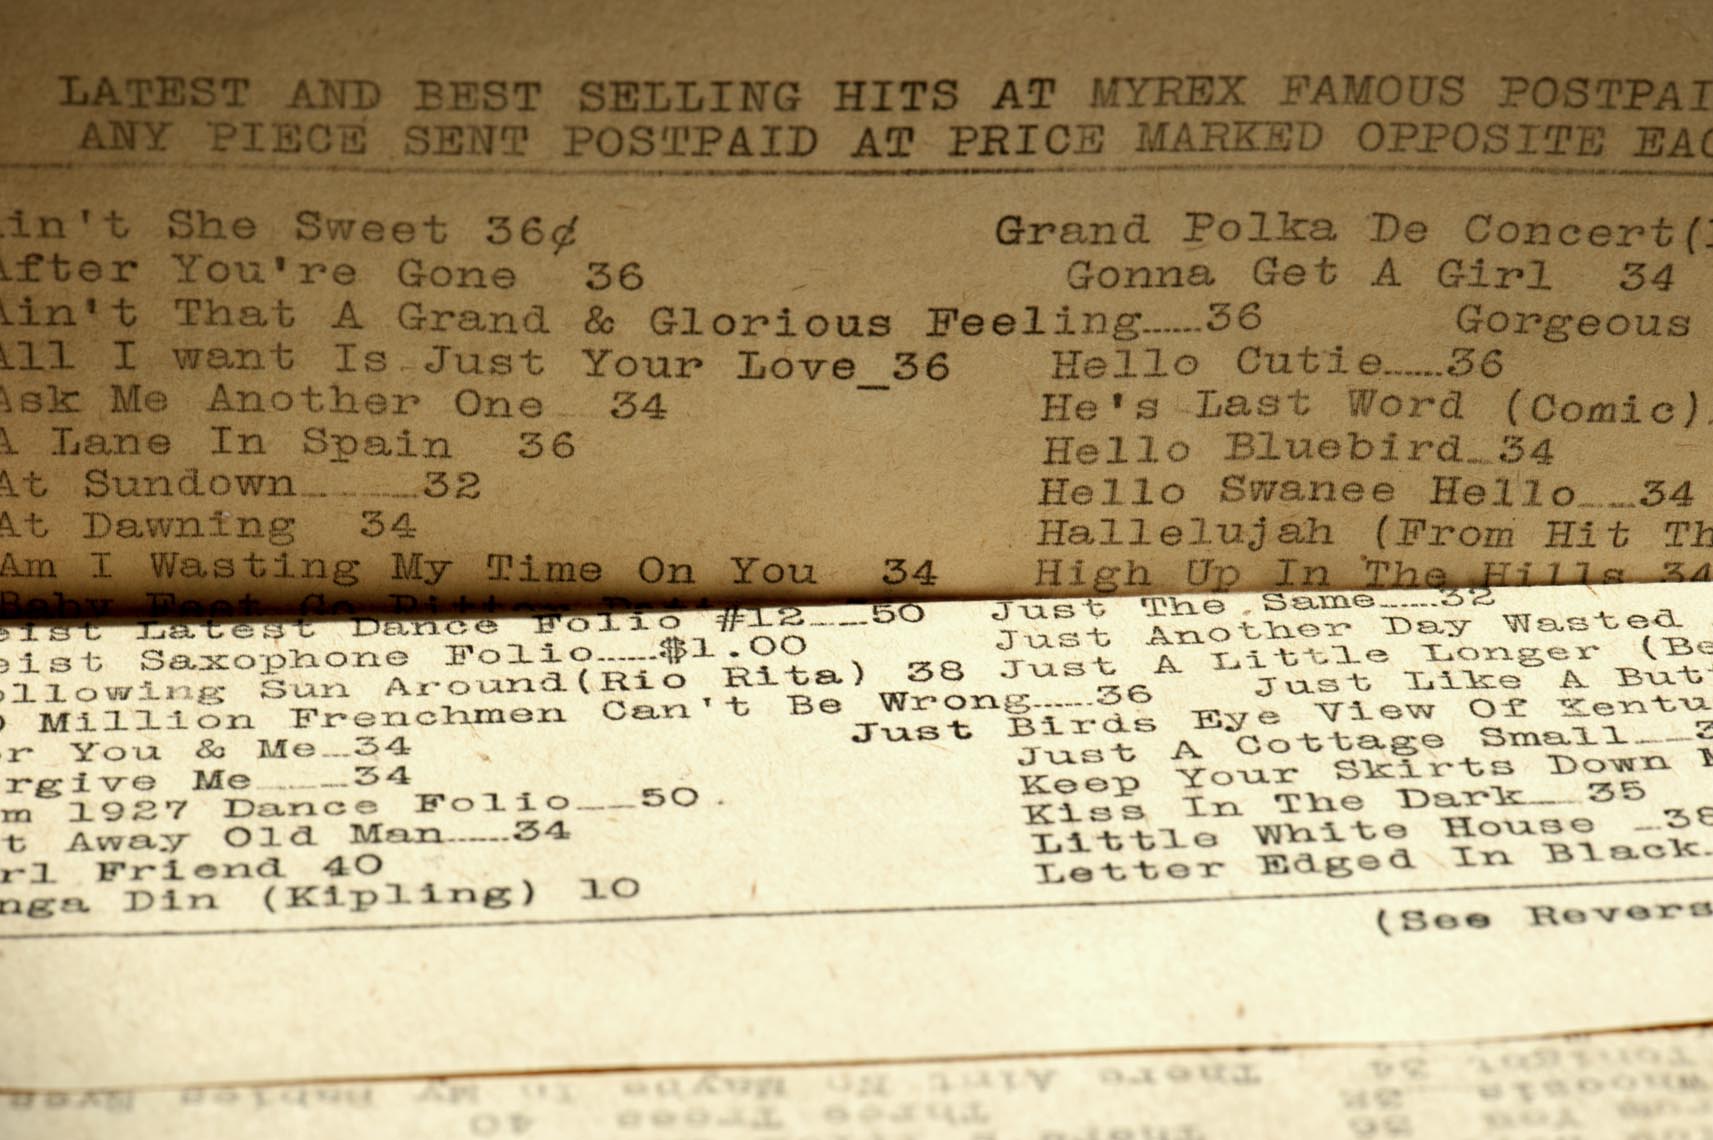 LATEST AND BEST SELLING HITS AT MYREX FAMOUS POSTPAI
ANY PIECE SENT POSTPAID AT PRICE MARKED OPPOSITE EAC
in't She Sweet 36¢ Grand Polka De Concert(
After You're Gone 36 Gonna Get A Girl 34
Ain't That A Grand & Glorious Feeling......36 Gorgeous
All I want Is Just Your Love_36 Hello Cutie......36
Ask Me Another One 34 He's Last Word (Comic)
A Lane In Spain 36 Hello Bluebird__34
At Sundown........32 Hello Swanee Hello....34
At Dawning 34 Hallelujah (From Hit Th
Am I Wasting My Time On You 34 High Up In The Hills 34
Baby Feet Go Pitter
eist Latest Dance Folio #12....50 Just The Same......32
eist Saxophone Folio......$1.00 Just Another Day Wasted
ollowing Sun Around(Rio Rita) 38 Just A Little Longer (Be
Million Frenchmen Can't Be Wrong......36 Just Like A Butt
r You & Me...34 Just Birds Eye View Of Kentu
rgive Me......34 Just A Cottage Small....3
m 1927 Dance Folio....50. Keep Your Skirts Down M
t Away Old Man......34 Kiss In The Dark....35
rl Friend 40 Little White House _38
nga Din (Kipling) 10 Letter Edged In Black.
(See Revers